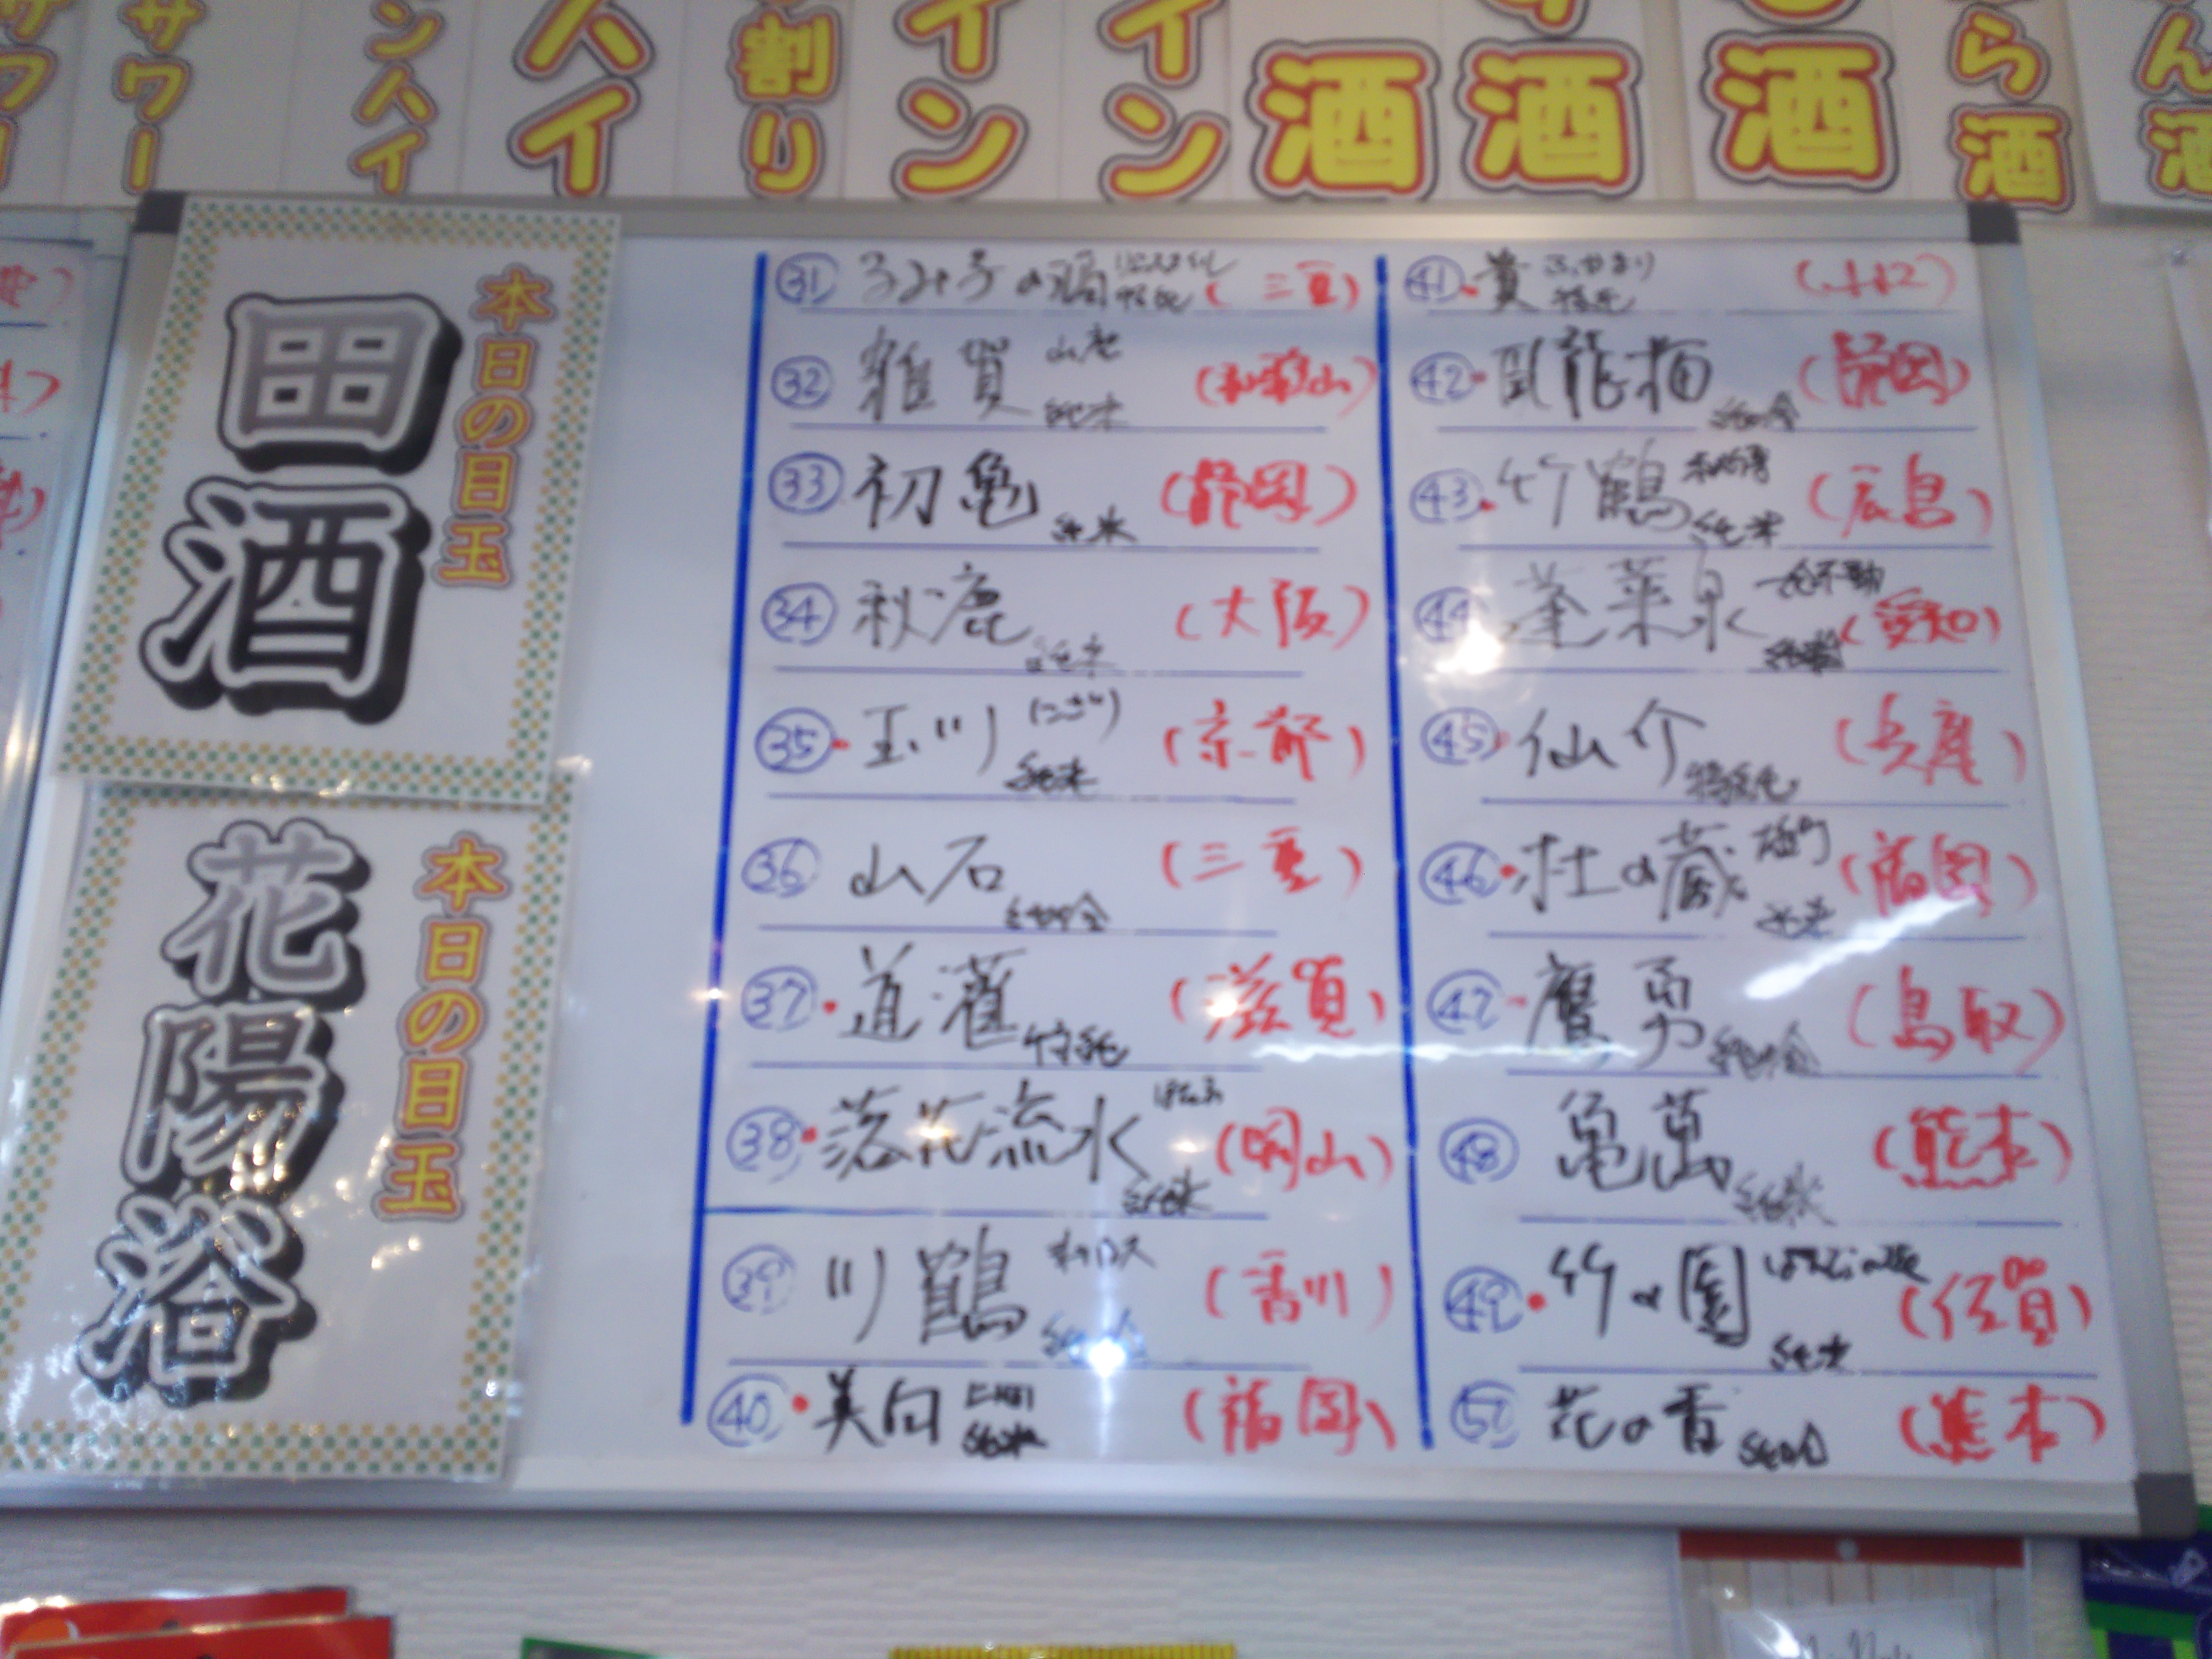 サワー
サワー
ンハイ
ハイ
割り
イン
イン
酒
酒
酒
ら酒
ん酒
本日の目玉
田酒
本日の目玉
花陽浴
㉛ るみ子の酒 特純 (三重)
㉜ 雑賀 山廃 純米 (和歌山)
㉝ 初亀 純米 (静岡)
㉞ 秋鹿 純米 (大阪)
㉟ 玉川 (にごり) 純米 (京都)
㊱ 山石 純吟 (三重)
㊲ 道灌 特純 (滋賀)
㊳ 落花流水 純米 (岡山)
㊴ 川鶴 (香川)
㊵ 美田 純米 (福岡)
㊶ 貴 特純
㊷ 臥龍梅 純吟 (静岡)
㊸ 竹鶴 純米 (広島)
㊹ 蓬莱泉 (愛知)
㊺ 仙介 特純 (兵庫)
㊻ 杜の蔵 (福岡)
㊼ 鷹勇 純吟 (鳥取)
㊽ 亀萬 純米 (熊本)
㊾ 竹の園 純米 (佐賀)
花の香 (熊本)